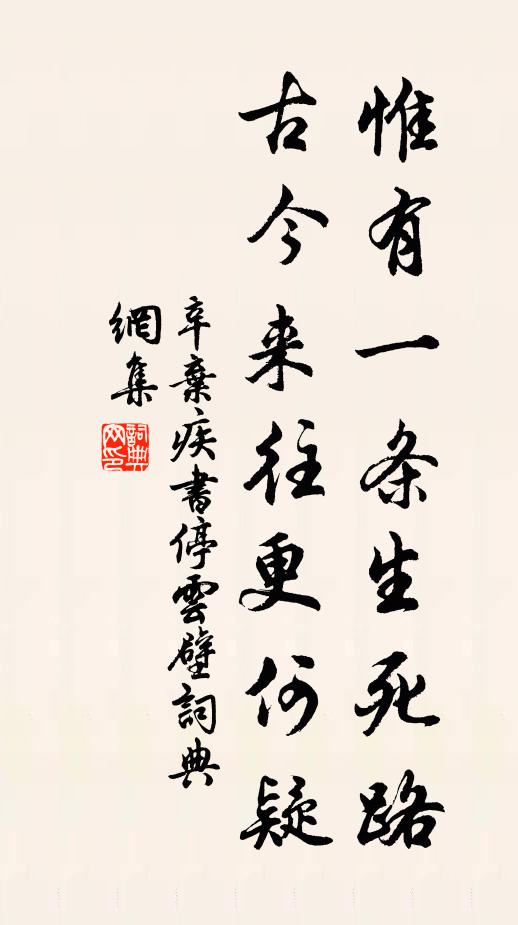 惟有一条生死路
古今来往更何疑
辛棄疾書停雲壁詞典
網集
詞典
网印